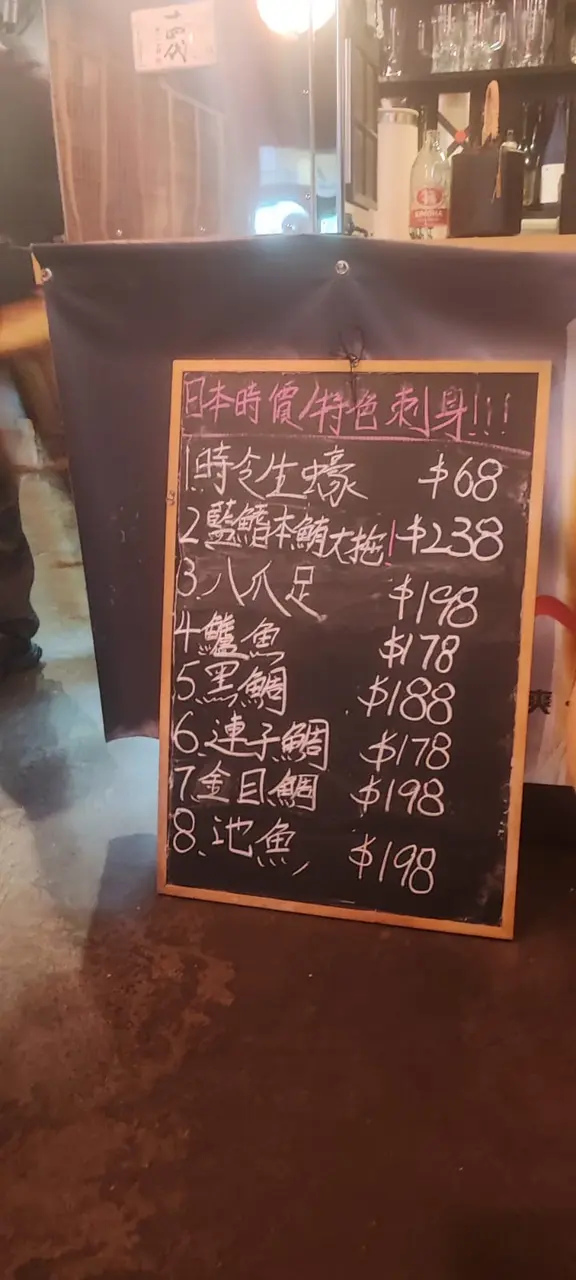 十四代
日本時價/特色刺身!!!
1 時令生蠔 $68
2 藍鰭本鮪大拖! $238
3. 八爪足 $198
4 鱸魚 $178
5. 黑鯛 $188
6. 連子鯛 $178
7. 金目鯛 $198
8. 池魚 $198
爽